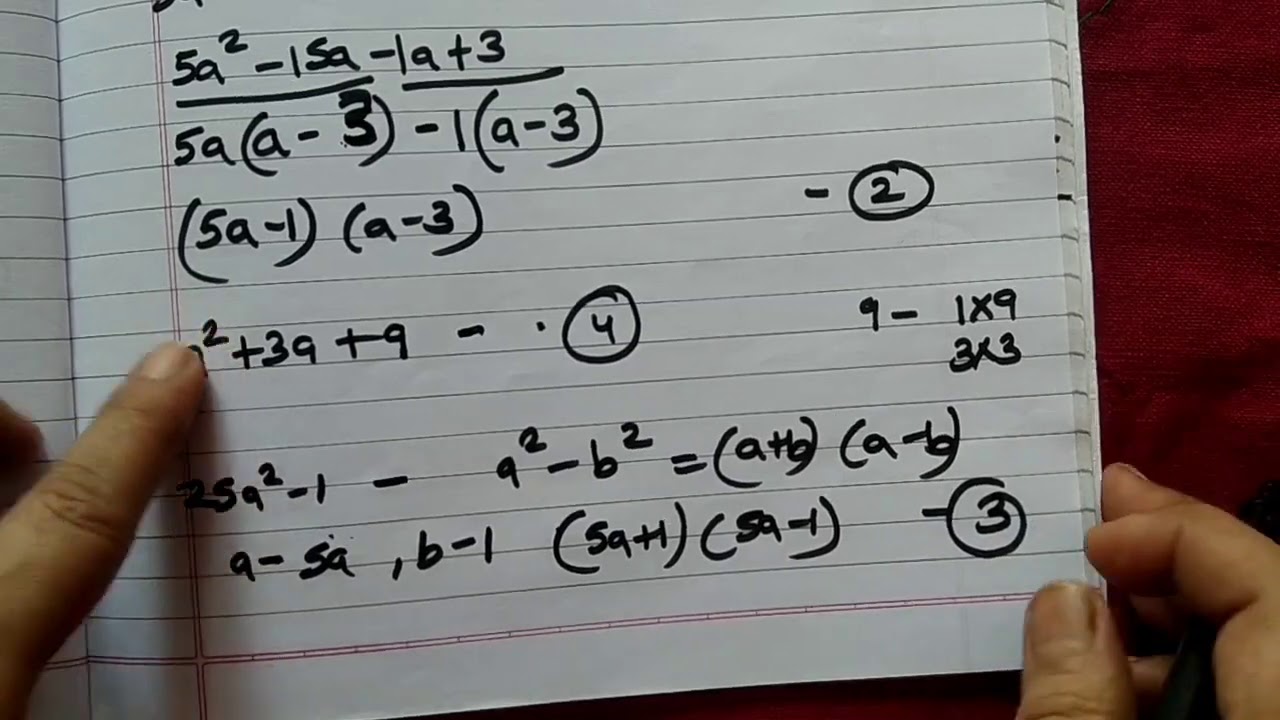 5a² - 15a - 1a + 3
5a(a - 3) - 1(a - 3)
(5a - 1) (a - 3) - ②
² + 3a + 9 - · ④ 9 - 1x9
3x3
25a² - 1 - a² - b² = (a+b) (a-b)
a - 5a , b - 1 (5a+1) (5a-1) - ③